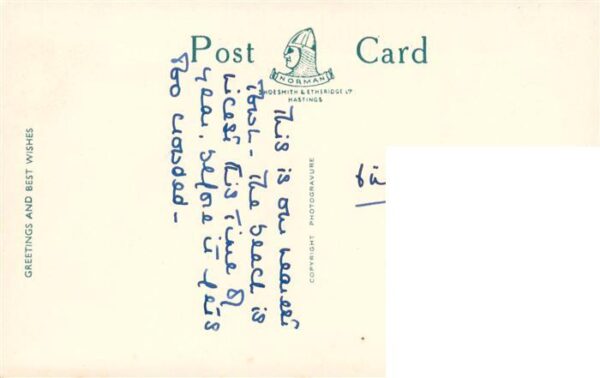 Post Card
NORMAN
SHOESMITH & ETHERIDGE LTD
HASTINGS
GREETINGS AND BEST WISHES
COPYRIGHT PHOTOGRAVURE
This is our nearest
Town - The beach is
nicest this Time of
year, before it gets
Too crowded -